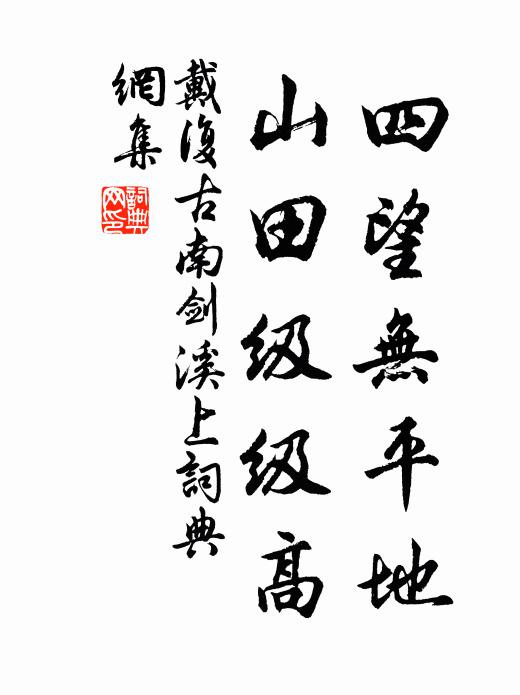 四望無平地
山田級級高
戴復古南劍溪上詞典
網集
詞典
网印